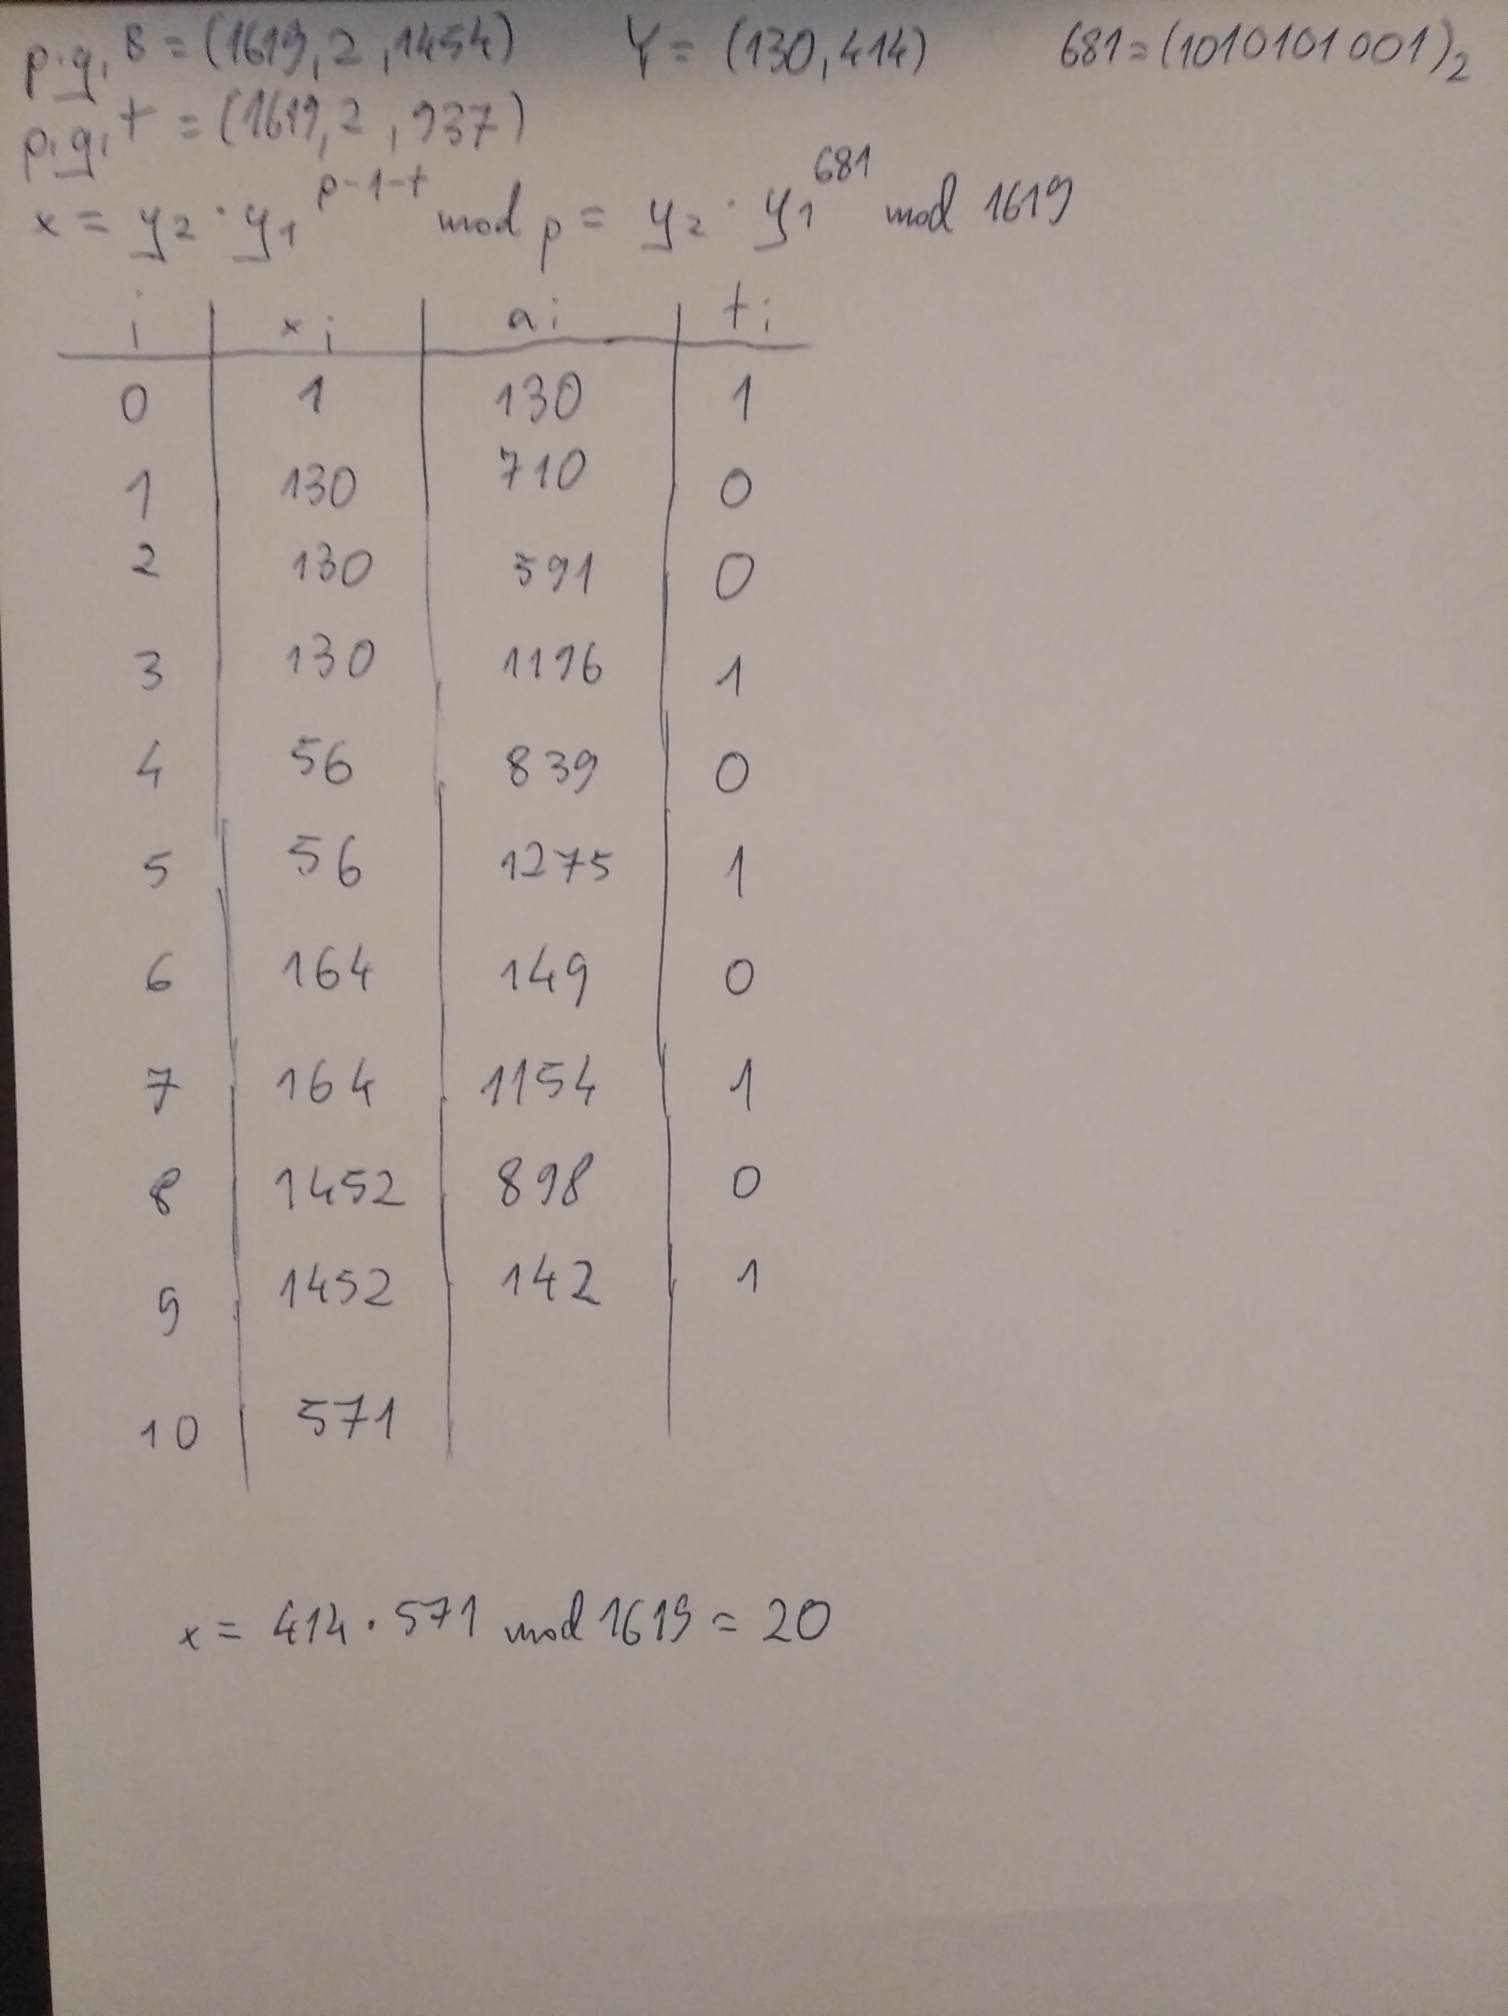 p.g,B = (1619,2,1454) Y = (130,414) 681=(1010101001)2
p,g,t = (1619,2,937)
x = y2 · y1^p-1-t mod p = y2 · y1^681 mod 1619
i xi ai ti
0 1 130 1
1 130 710 0
2 130 591 0
3 130 1196 1
4 56 839 0
5 56 1275 1
6 164 149 0
7 164 1154 1
8 1452 898 0
9 1452 142 1
10 571
x = 414 · 571 mod 1619 = 20